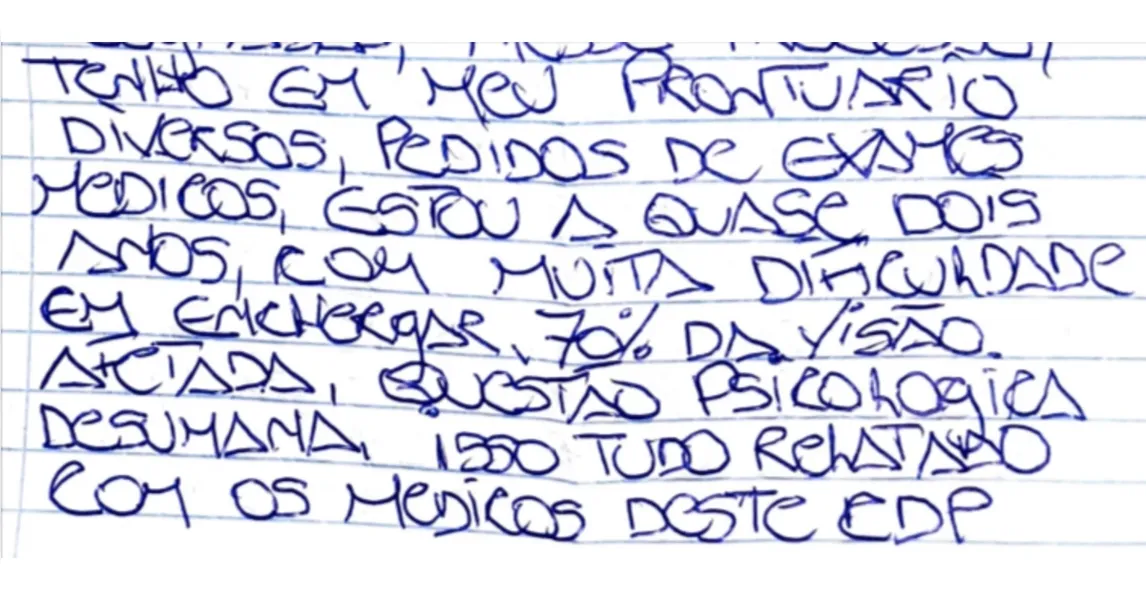 TENHO EM MEU PRONTUARIO
DIVERSOS, PEDIDOS DE EXAMES
MEDICOS, ESTOU A QUASE DOIS
ANOS, COM MUITA DIFICULDADE
EM ENCHERGAR, 70% DA VISÃO.
AFETADA, QUESTÃO PSICOLOGICA
DESUMANA, ISSO TUDO RELATADO
COM OS MEDICOS DESTE CDP